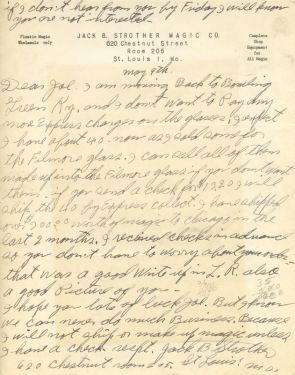 if I don't hear from you by Friday I will know
you are not interested.
Plastic Magic
Wholesale only
JACK B. STROTHER MAGIC CO.
620 Chestnut Street
Room 205
St. Louis 1, Mo.
Complete
Shop
Equipment
for
All Magic
May 9th.
Dear Joe. I am moving Back to Bowling
Green Ky. and I don't want to Pay any
more Express charges on the glasses, I expect
I have about 40. now as I sold some for
the Filmore glass. I can sell all of them
made up into the Filmore glass if you don't want
them. if you send a check for I will
ship the 40 by Express collect. I have shipped
over worth of magic to Chicago in the
last 2 months. I recieved checks in advance
so you don't have to worry about your order.
that was a good Write up in L. R. also
a good Picture of you -
I hope you lots of luck Joe. But I know
we can never do much Business. Because
I will not ship or make up magic unless
I have a check recpt. Jack B. Strother
620 Chestnut room St. Louis. Mo.